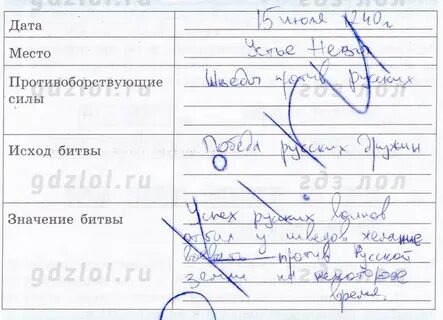 Дата 15 июля 1240 г
Место Устье Невы
Противоборствующие Шведы против русских
силы
gdzlol.ru
Исход битвы Победа русских дружин
gdzlol.ru
Значение битвы Успех русских воинов
отбил у шведов желание
воевать против Русской
gdzlol.ru
земли на некоторое
время.